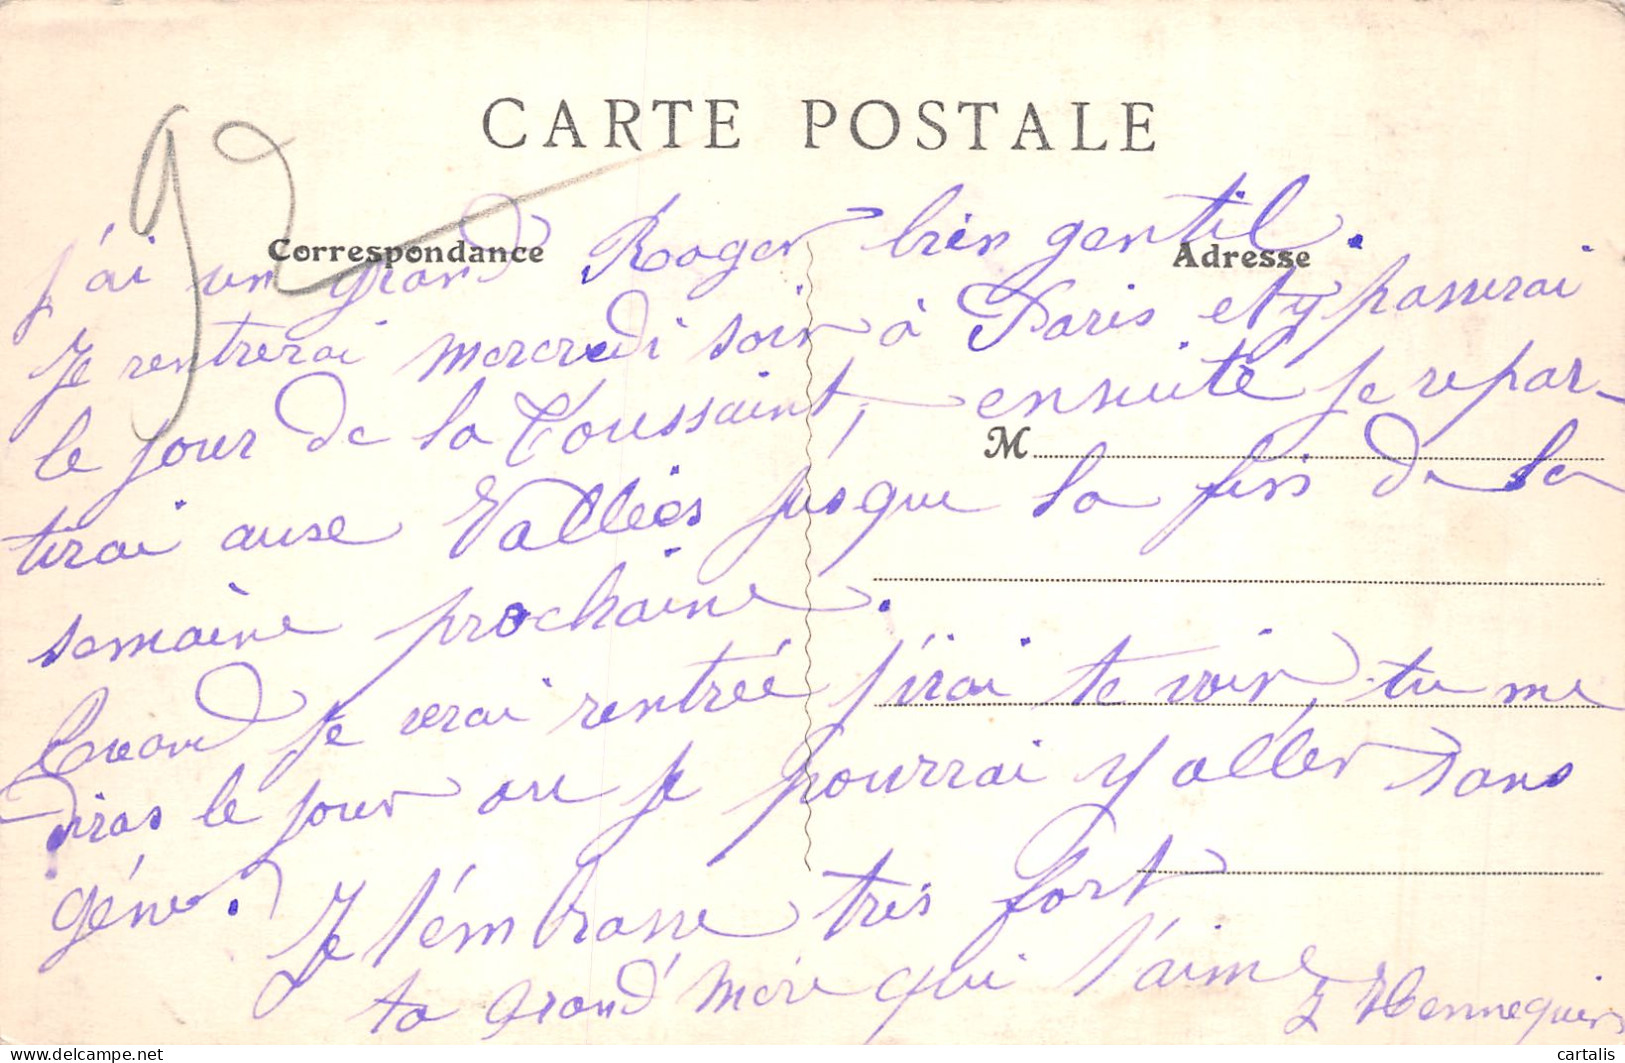 92
CARTE POSTALE
Correspondance
Adresse
M
J'ai un grand Roger bien gentil.
Je rentrerai mercredi soir à Paris et y passerai
le jour de la Toussaint, ensuite je repar-
tirai aux Vallées jusque la fin de la
semaine prochaine.
Quand je serai rentrée j'irai te voir, tu me
diras le jour ou je pourrai y aller sans
gêner.
Je t'embrasse très fort
ta Grand'mère qui t'aime
Hennequin
delcampe.net
cartalis